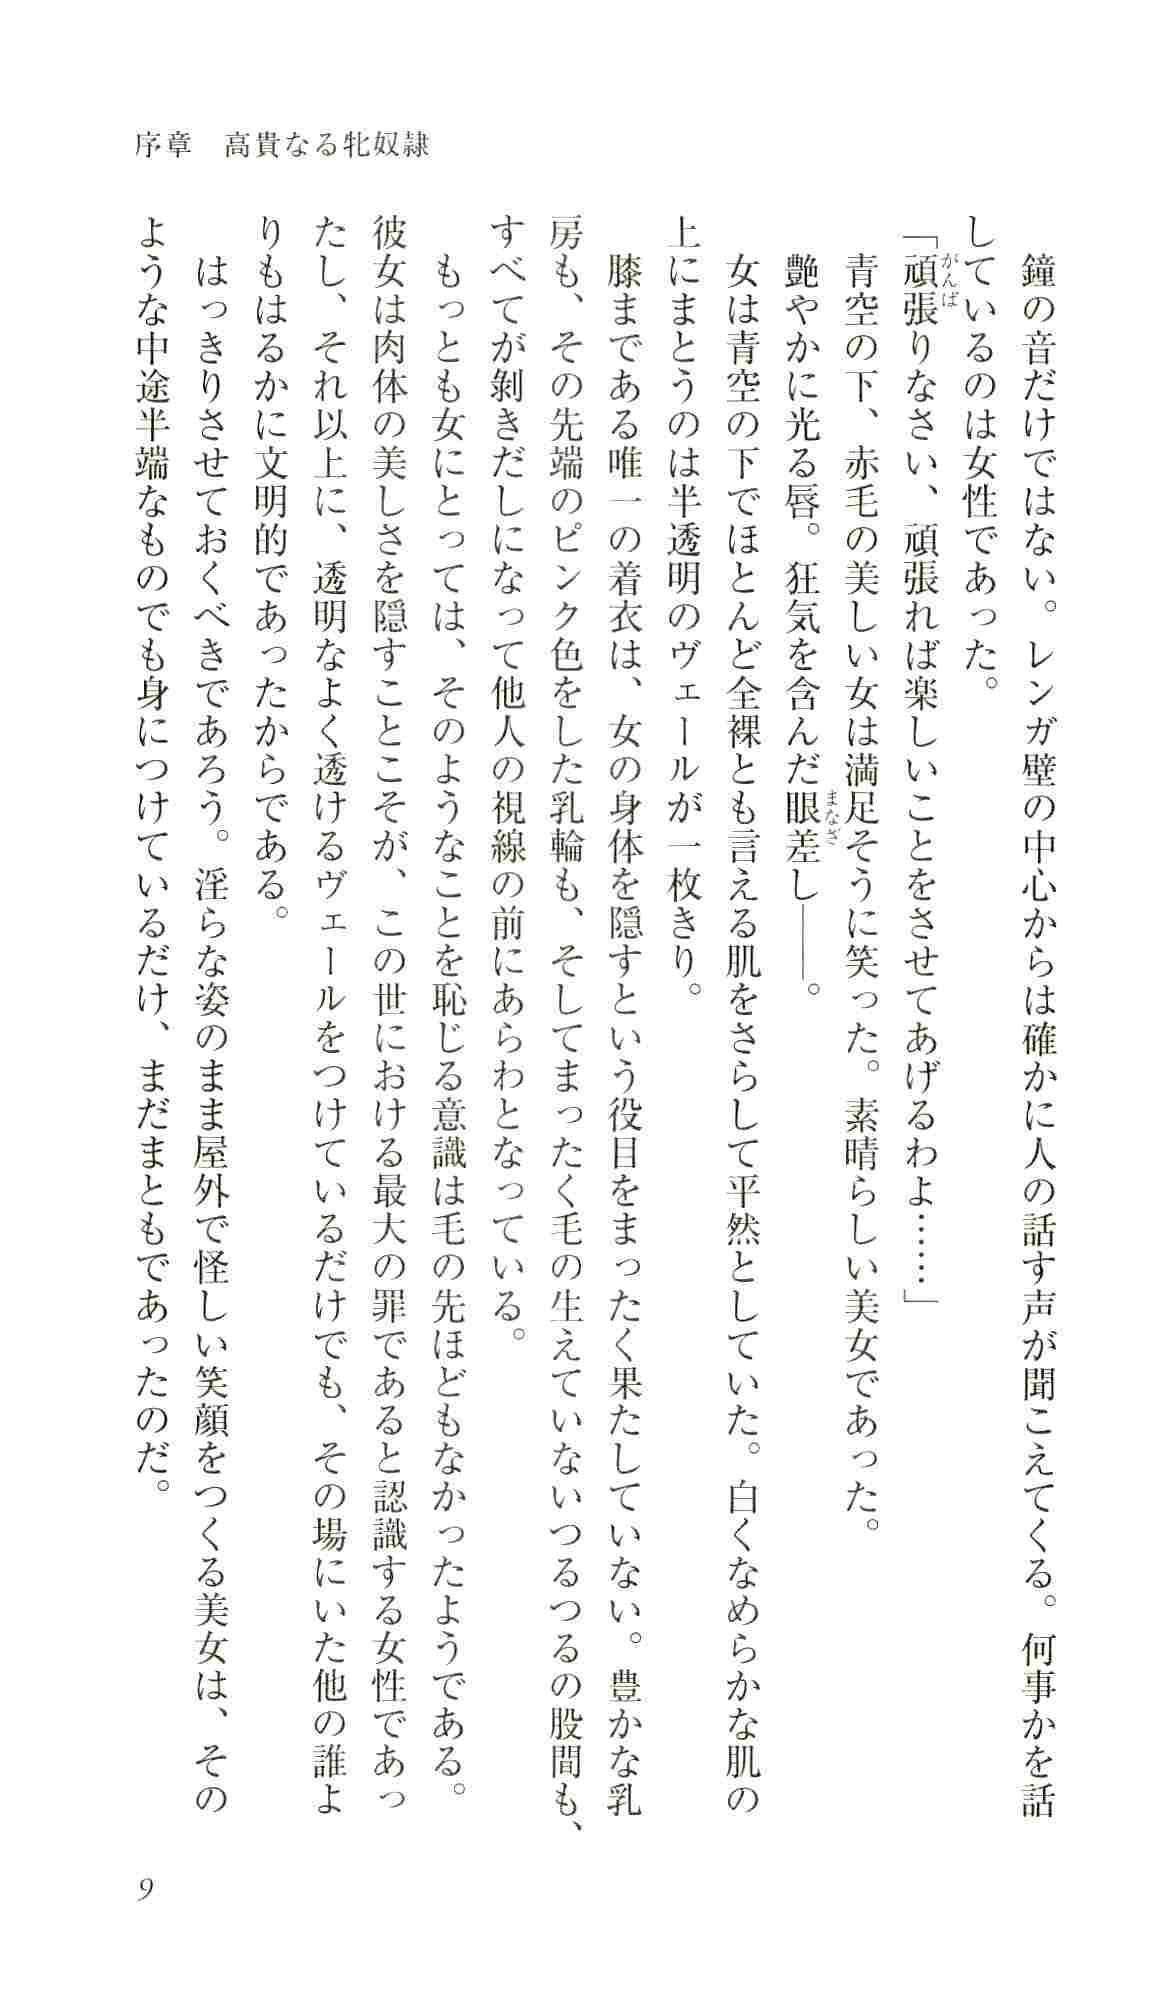 序章　高貴なる牝奴隷
　鐘の音だけではない。レンガ壁の中心からは確かに人の話す声が聞こえてくる。何事かを話
しているのは女性であった。
「頑張りなさい、頑張れば楽しいことをさせてあげるわよ……」
　青空の下、赤毛の美しい女は満足そうに笑った。素晴らしい美女であった。
　艶やかに光る唇。狂気を含んだ眼差し――。
　女は青空の下でほとんど全裸とも言える肌をさらして平然としていた。白くなめらかな肌の
上にまとうのは半透明のヴェールが一枚きり。
　膝まである唯一の着衣は、女の身体を隠すという役目をまったく果たしていない。豊かな乳
房も、その先端のピンク色をした乳輪も、そしてまったく毛の生えていないつるつるの股間も、
すべてが剝きだしになって他人の視線の前にあらわとなっている。
　もっとも女にとっては、そのようなことを恥じる意識は毛の先ほどもなかったようである。
彼女は肉体の美しさを隠すことこそが、この世における最大の罪であると認識する女性であっ
たし、それ以上に、透明なよく透けるヴェールをつけているだけでも、その場にいた他の誰よ
りもはるかに文明的であったからである。
　はっきりさせておくべきであろう。淫らな姿のまま屋外で怪しい笑顔をつくる美女は、その
ような中途半端なものでも身につけているだけ、まだまともであったのだ。
9